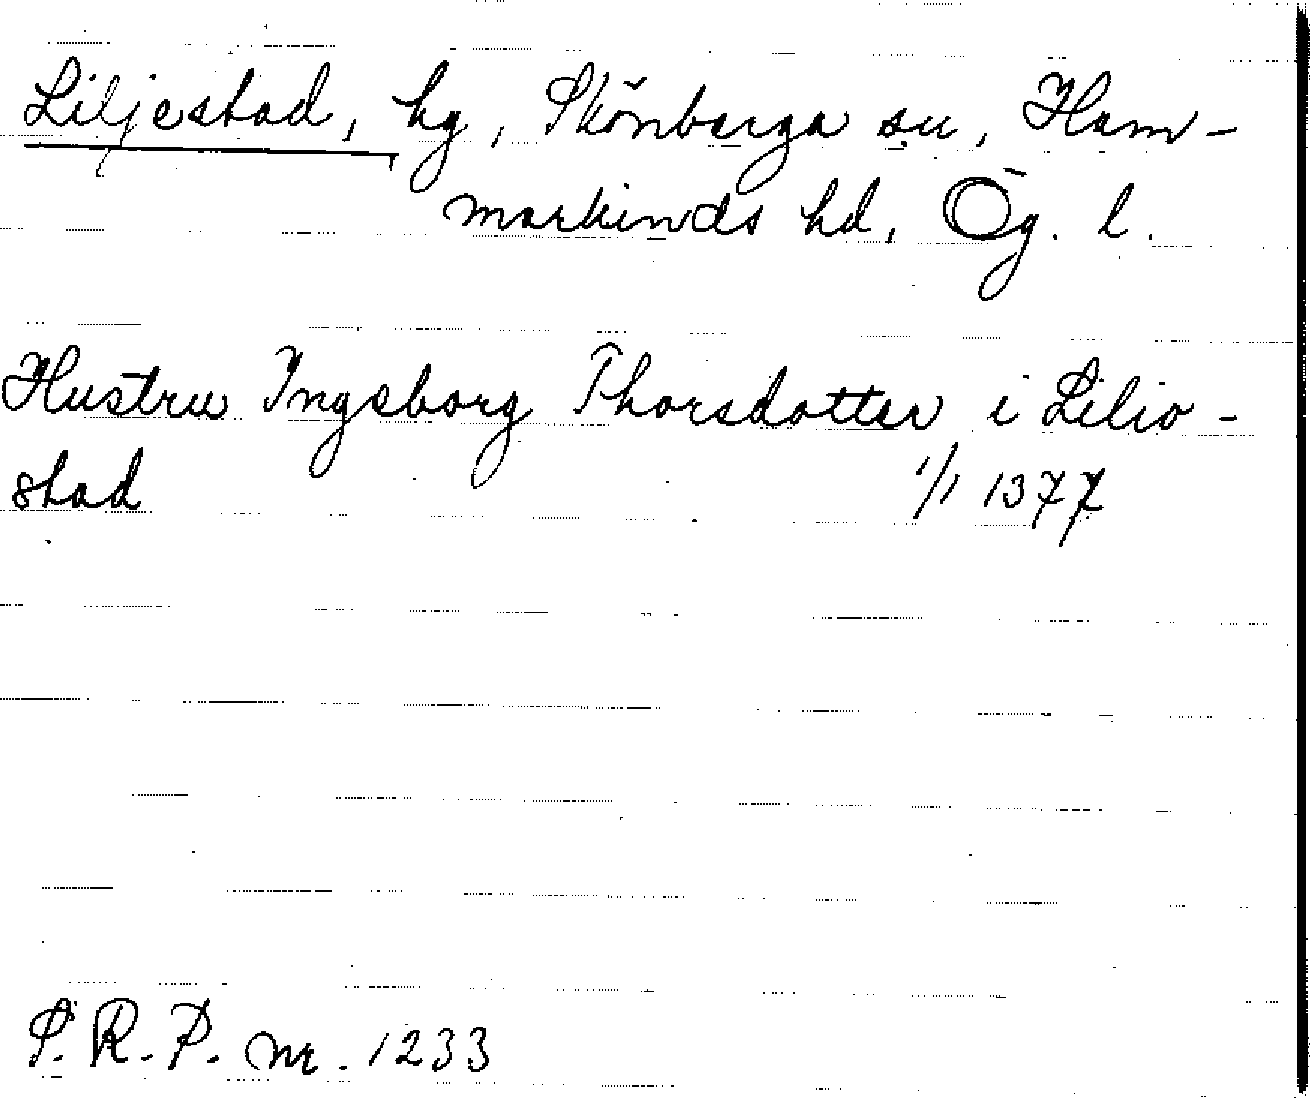 Liljestad, hg, Skönbarga sn, Ham-
markinds hd, Ög. l.
Hustru Ingeborg Thorsdotter i Lilio-
stad 1/1 1377
S. R. P. nr. 1233